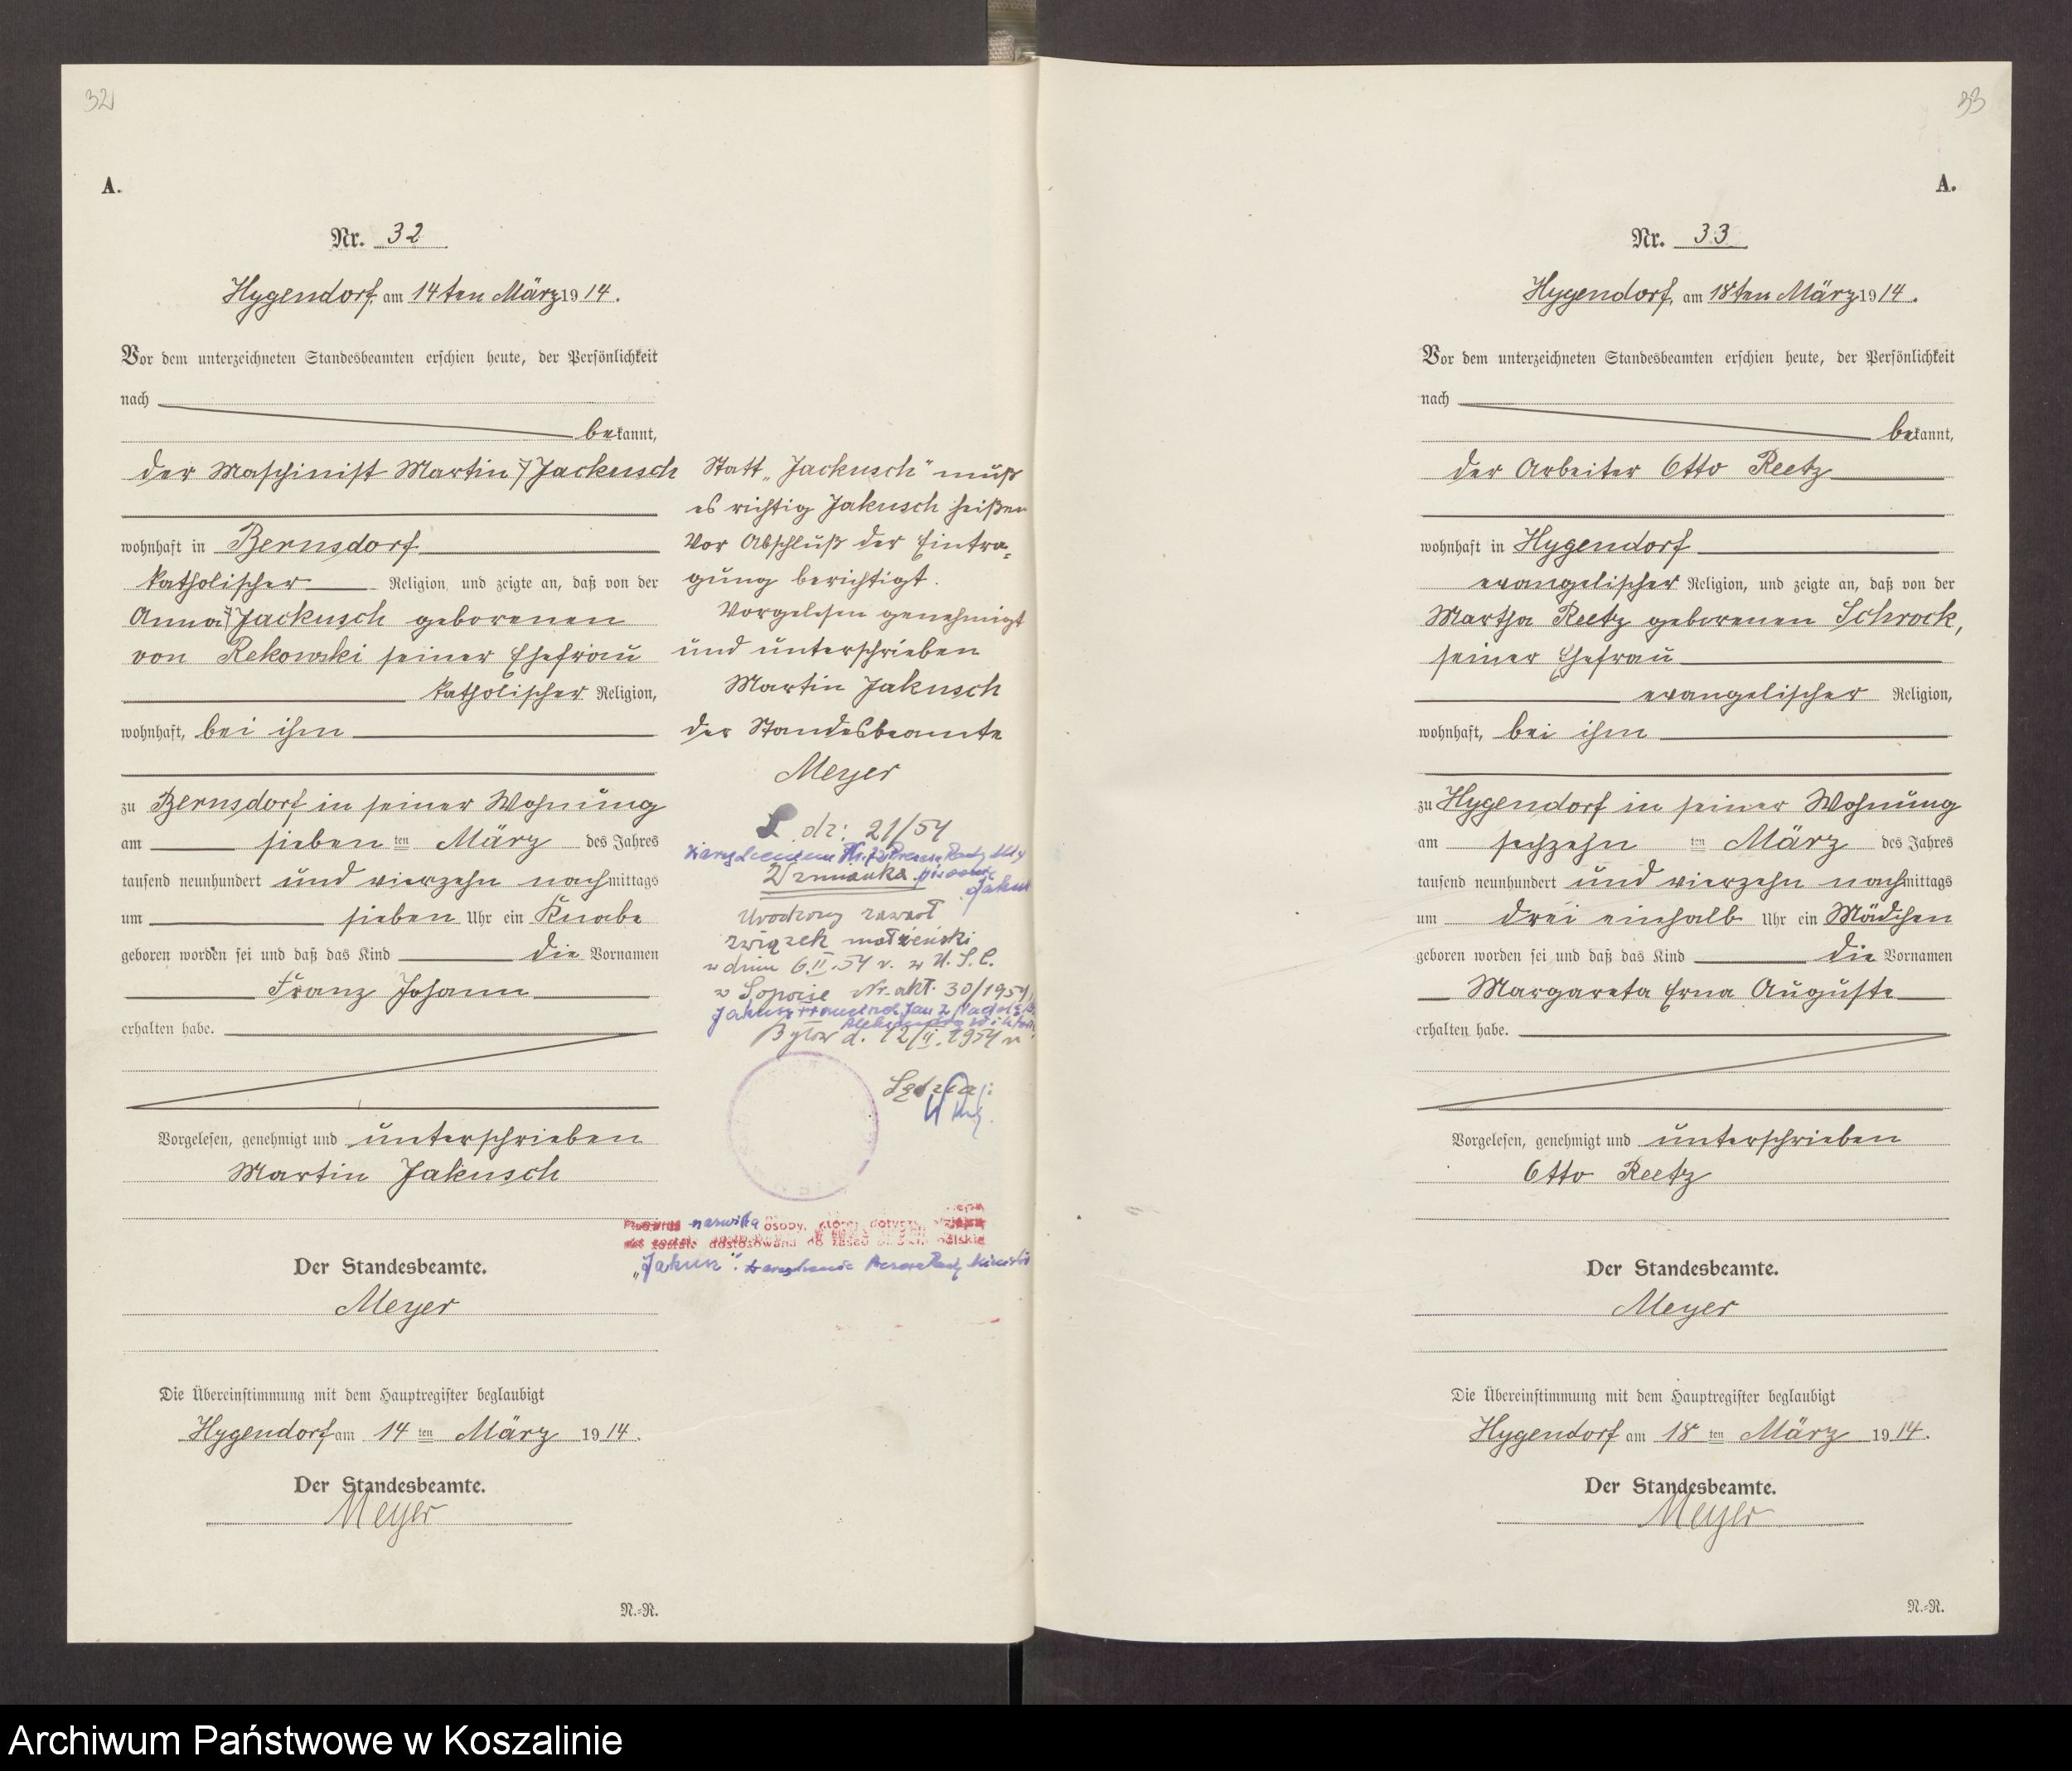 32
A.
Nr. 32
Hygendorf, am 14ten März 1914.
Vor dem unterzeichneten Standesbeamten erschien heute, der Persönlichkeit
nach
bekannt,
der Maschinist Martin Jackusch
wohnhaft in Bernsdorf
katholischer Religion, und zeigte an, daß von der
Anna Jackusch geborenen
von Rekowski seiner Ehefrau
katholischer Religion,
wohnhaft, bei ihm
zu Bernsdorf in seiner Wohnung
am sieben ten März des Jahres
tausend neunhundert und vierzehn nachmittags
um sieben Uhr ein Knabe
geboren worden sei und daß das Kind die Vornamen
Franz Johann
erhalten habe.
Vorgelesen, genehmigt und unterschrieben
Martin Jakusch
Der Standesbeamte.
Meyer
Die Übereinstimmung mit dem Hauptregister beglaubigt
Hygendorf, am 14 ten März 1914.
Der Standesbeamte.
Meyer
N.-R.
Statt „Jackusch" muß
es richtig Jakusch heißen
Vor Abschluß der Eintra-
gung berichtigt.
Vorgelesen genehmigt
und unterschrieben
Martin Jakusch
der Standesbeamte
Meyer
L. dz: 21/54
Wzmianka
Jakusz
Urodzony zawarł
związek małżeński
w dniu 6.II.54 r. w U.S.C.
w Sopocie Nr. akt. 30/1954
Bytów d. 12/II.1954 r.
Sędzia:
nazwiska osoby, której dotyczy
została dostosowana do zasad polskiej
„Jakusz".
33
A.
Nr. 33
Hygendorf, am 18ten März 1914.
Vor dem unterzeichneten Standesbeamten erschien heute, der Persönlichkeit
nach
bekannt,
der Arbeiter Otto Reetz
wohnhaft in Hygendorf
evangelischer Religion, und zeigte an, daß von der
Martha Reetz geborenen Schrock,
seiner Ehefrau
evangelischer Religion,
wohnhaft, bei ihm
zu Hygendorf in seiner Wohnung
am sechzehn ten März des Jahres
tausend neunhundert und vierzehn nachmittags
um drei einhalb Uhr ein Mädchen
geboren worden sei und daß das Kind die Vornamen
Margareta Erna Auguste
erhalten habe.
Vorgelesen, genehmigt und unterschrieben
Otto Reetz
Der Standesbeamte.
Meyer
Die Übereinstimmung mit dem Hauptregister beglaubigt
Hygendorf am 18 ten März 1914.
Der Standesbeamte.
Meyer
N.-R.
Archiwum Państwowe w Koszalinie